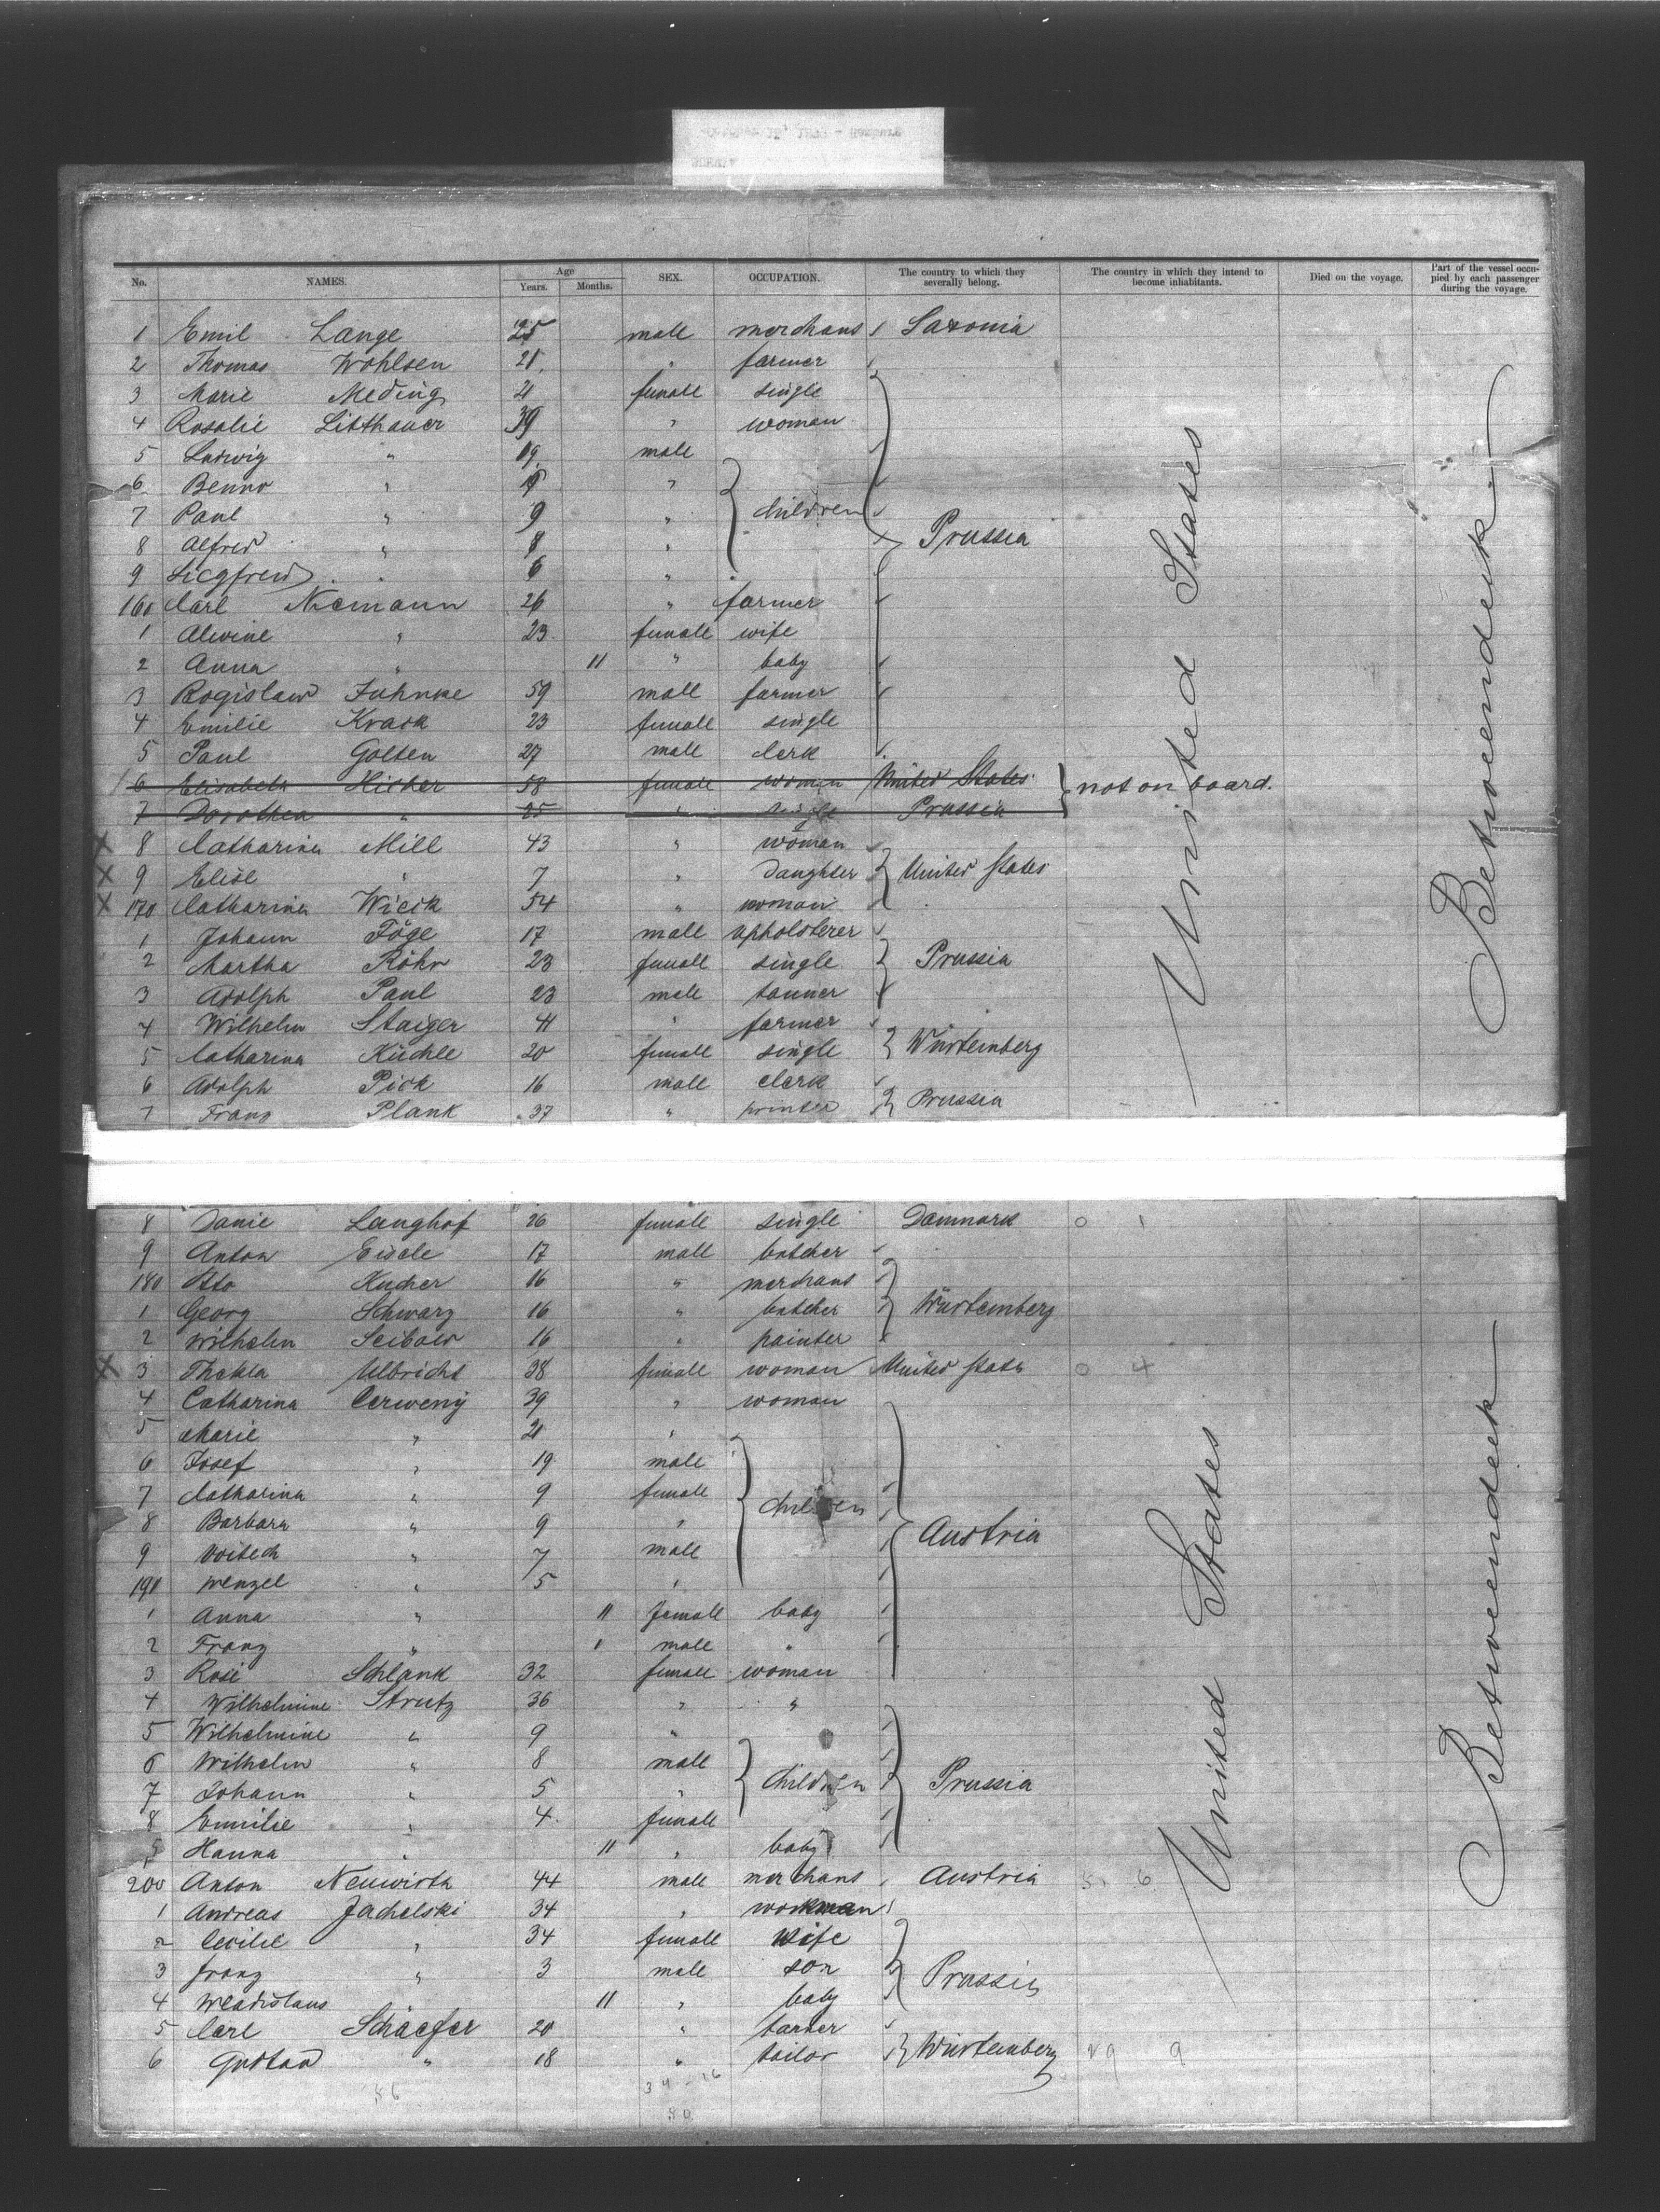 No. NAMES. Age Years. Months. SEX. OCCUPATION. The country to which they severally belong. The country in which they intend to become inhabitants. Died on the voyage. Part of the vessel occupied by each passenger during the voyage.
1 Emil Lange 25 male merchant Saxonia
2 Thomas Wohlsen 21 " farmer
3 Marie Meding 21 female single
4 Rosalie Litthauer 39 " woman
5 Ludwig " 19 male
6 Benno " "
7 Paul " 9 " children
8 Alfred " 8 " Prussia
9 Siegfried " 6 "
160 Carl Niemann 26 " farmer
1 Alwine " 23 female wife
2 Anna " 11 " baby
3 Bogislaw Juhnke 59 male farmer
4 Emilie Krack 23 female single
5 Paul Golten 27 male clerk
6 Elisabeth Hilker 58 female woman United States not on board.
7 Dorothea " 25 " single Prussia
8 Catharina Mill 43 " woman
9 Elise " 7 " daughter United States
170 Catharina Wieck 54 " woman
1 Johann Föge 17 male upholsterer
2 Martha Röhr 23 female single Prussia
3 Adolph Paul 23 male tanner
4 Wilhelm Staiger 41 " farmer
5 Catharina Küchle 20 female single Würtemberg
6 Adolph Pick 16 male clerk
7 Franz Plank 37 " printer Prussia
United States
Betweendeck
8 Langhof 26 female single Danmark 0 1
9 Anton Eisele 17 male butcher
180 Otto Kucher 16 " merchant
1 Georg Schwarz 16 " butcher Würtemberg
2 Wilhelm Seibold 16 " painter
3 Thekla Ulbricht 38 female woman United States 0 4
4 Catharina Cerweny 39 " woman
5 Marie " 21 "
6 Josef " 19 male
7 Catharina " 9 female children
8 Barbara " 9 " Austria
9 Voitech " 7 male
190 Wenzel " 5 "
1 Anna " 11 female baby
2 Franz " 1 male "
3 Rosi Schlank 32 female woman
4 Wilhelmine Strutz 36 " "
5 Wilhelmine " 9 "
6 Wilhelm " 8 male
7 Johann " 5 " children Prussia
8 Emilie " 4 female
9 Hanna " 11 " baby
200 Anton Neuwirth 44 male merchant Austria 6
1 Andreas Jachelski 34 " workman
2 Cecilie " 34 female wife
3 Franz " 3 male son Prussia
4 Wladislaus " 11 " baby
5 Carl Schaefer 20 " barber
6 Gustav " 18 " tailor Würtemberg 29 9
United States
Betweendeck
56 34 - 16
50